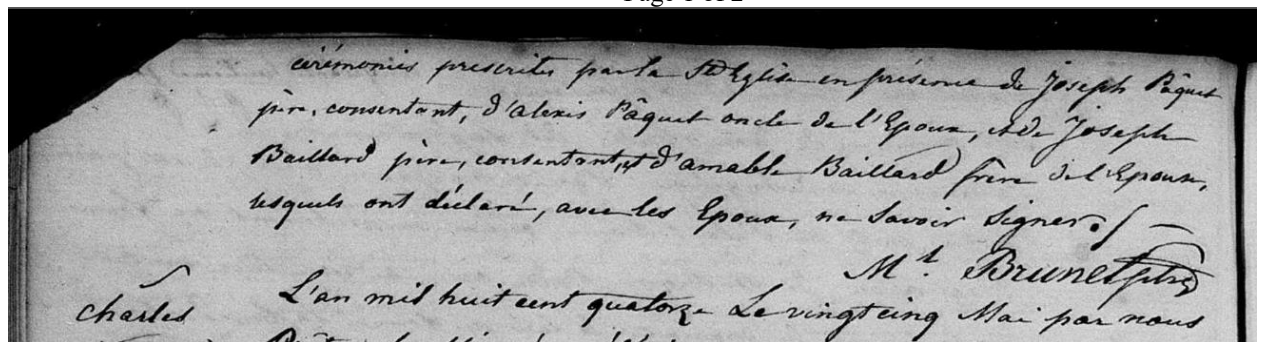 cérémonies prescrites par la Ste Eglise en présence de Joseph Pâquet
père, consentant, d'alexis Pâquet oncle de l'Epoux, et de Joseph
Baillard père, consentant, et d'amable Baillard frère de l'Epouse,
lesquels ont déclaré, avec les Epoux, ne Savoir Signer. / —
Mt. Brunet ptre
charles
L'an mil huit cent quatorze Le vingt cinq Mai par nous